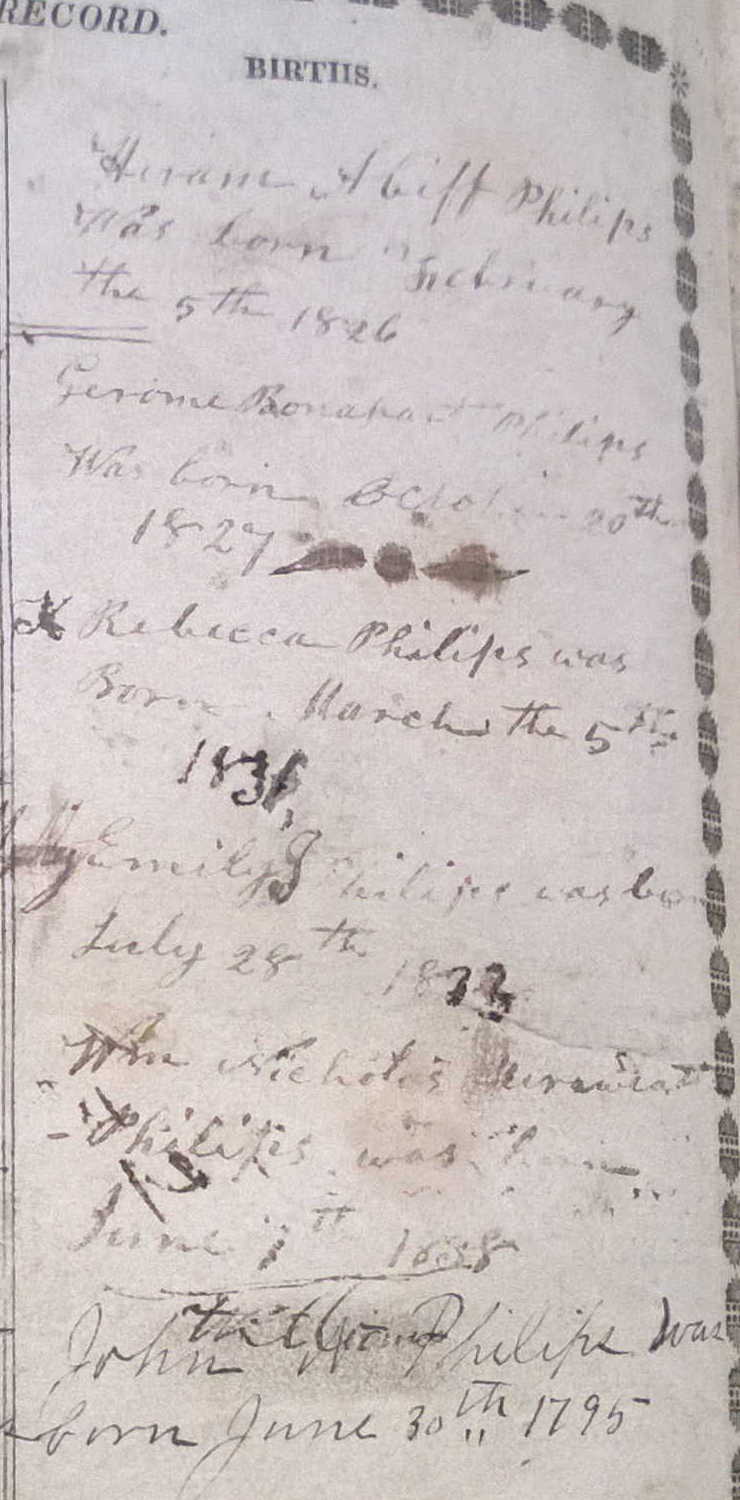 RECORD.
BIRTHS.
Hiram Abiff Philips
Was born February
the 5th 1826
Gerome Bonapart Philips
Was born October 20th
1827
Rebecca Philips was
Born March the 5th
183
Emily J Philips was born
July 28th 183
Wm Nicholis
Philips was born
June 7th 1838
John Philips was
born June 30th 1795